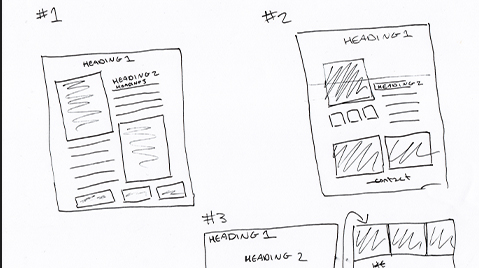 #1
HEADING 1
HEADING 2
HEADING 3
#2
HEADING 1
HEADING 2
contact
#3
HEADING 1
HEADING 2